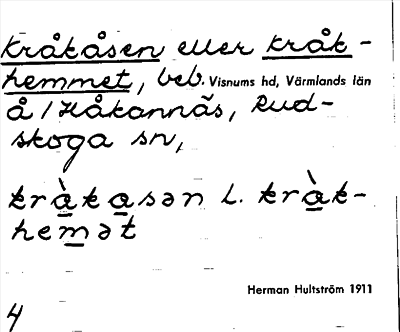 Kråkåsen eller Kråk-
hemmet, beb. Visnums hd, Värmlands län
å /Håkannäs, Rud-
skoga sn,
krà̱ka̱sən l. krà̱k-
hem̱ət
Herman Hultström 1911
4